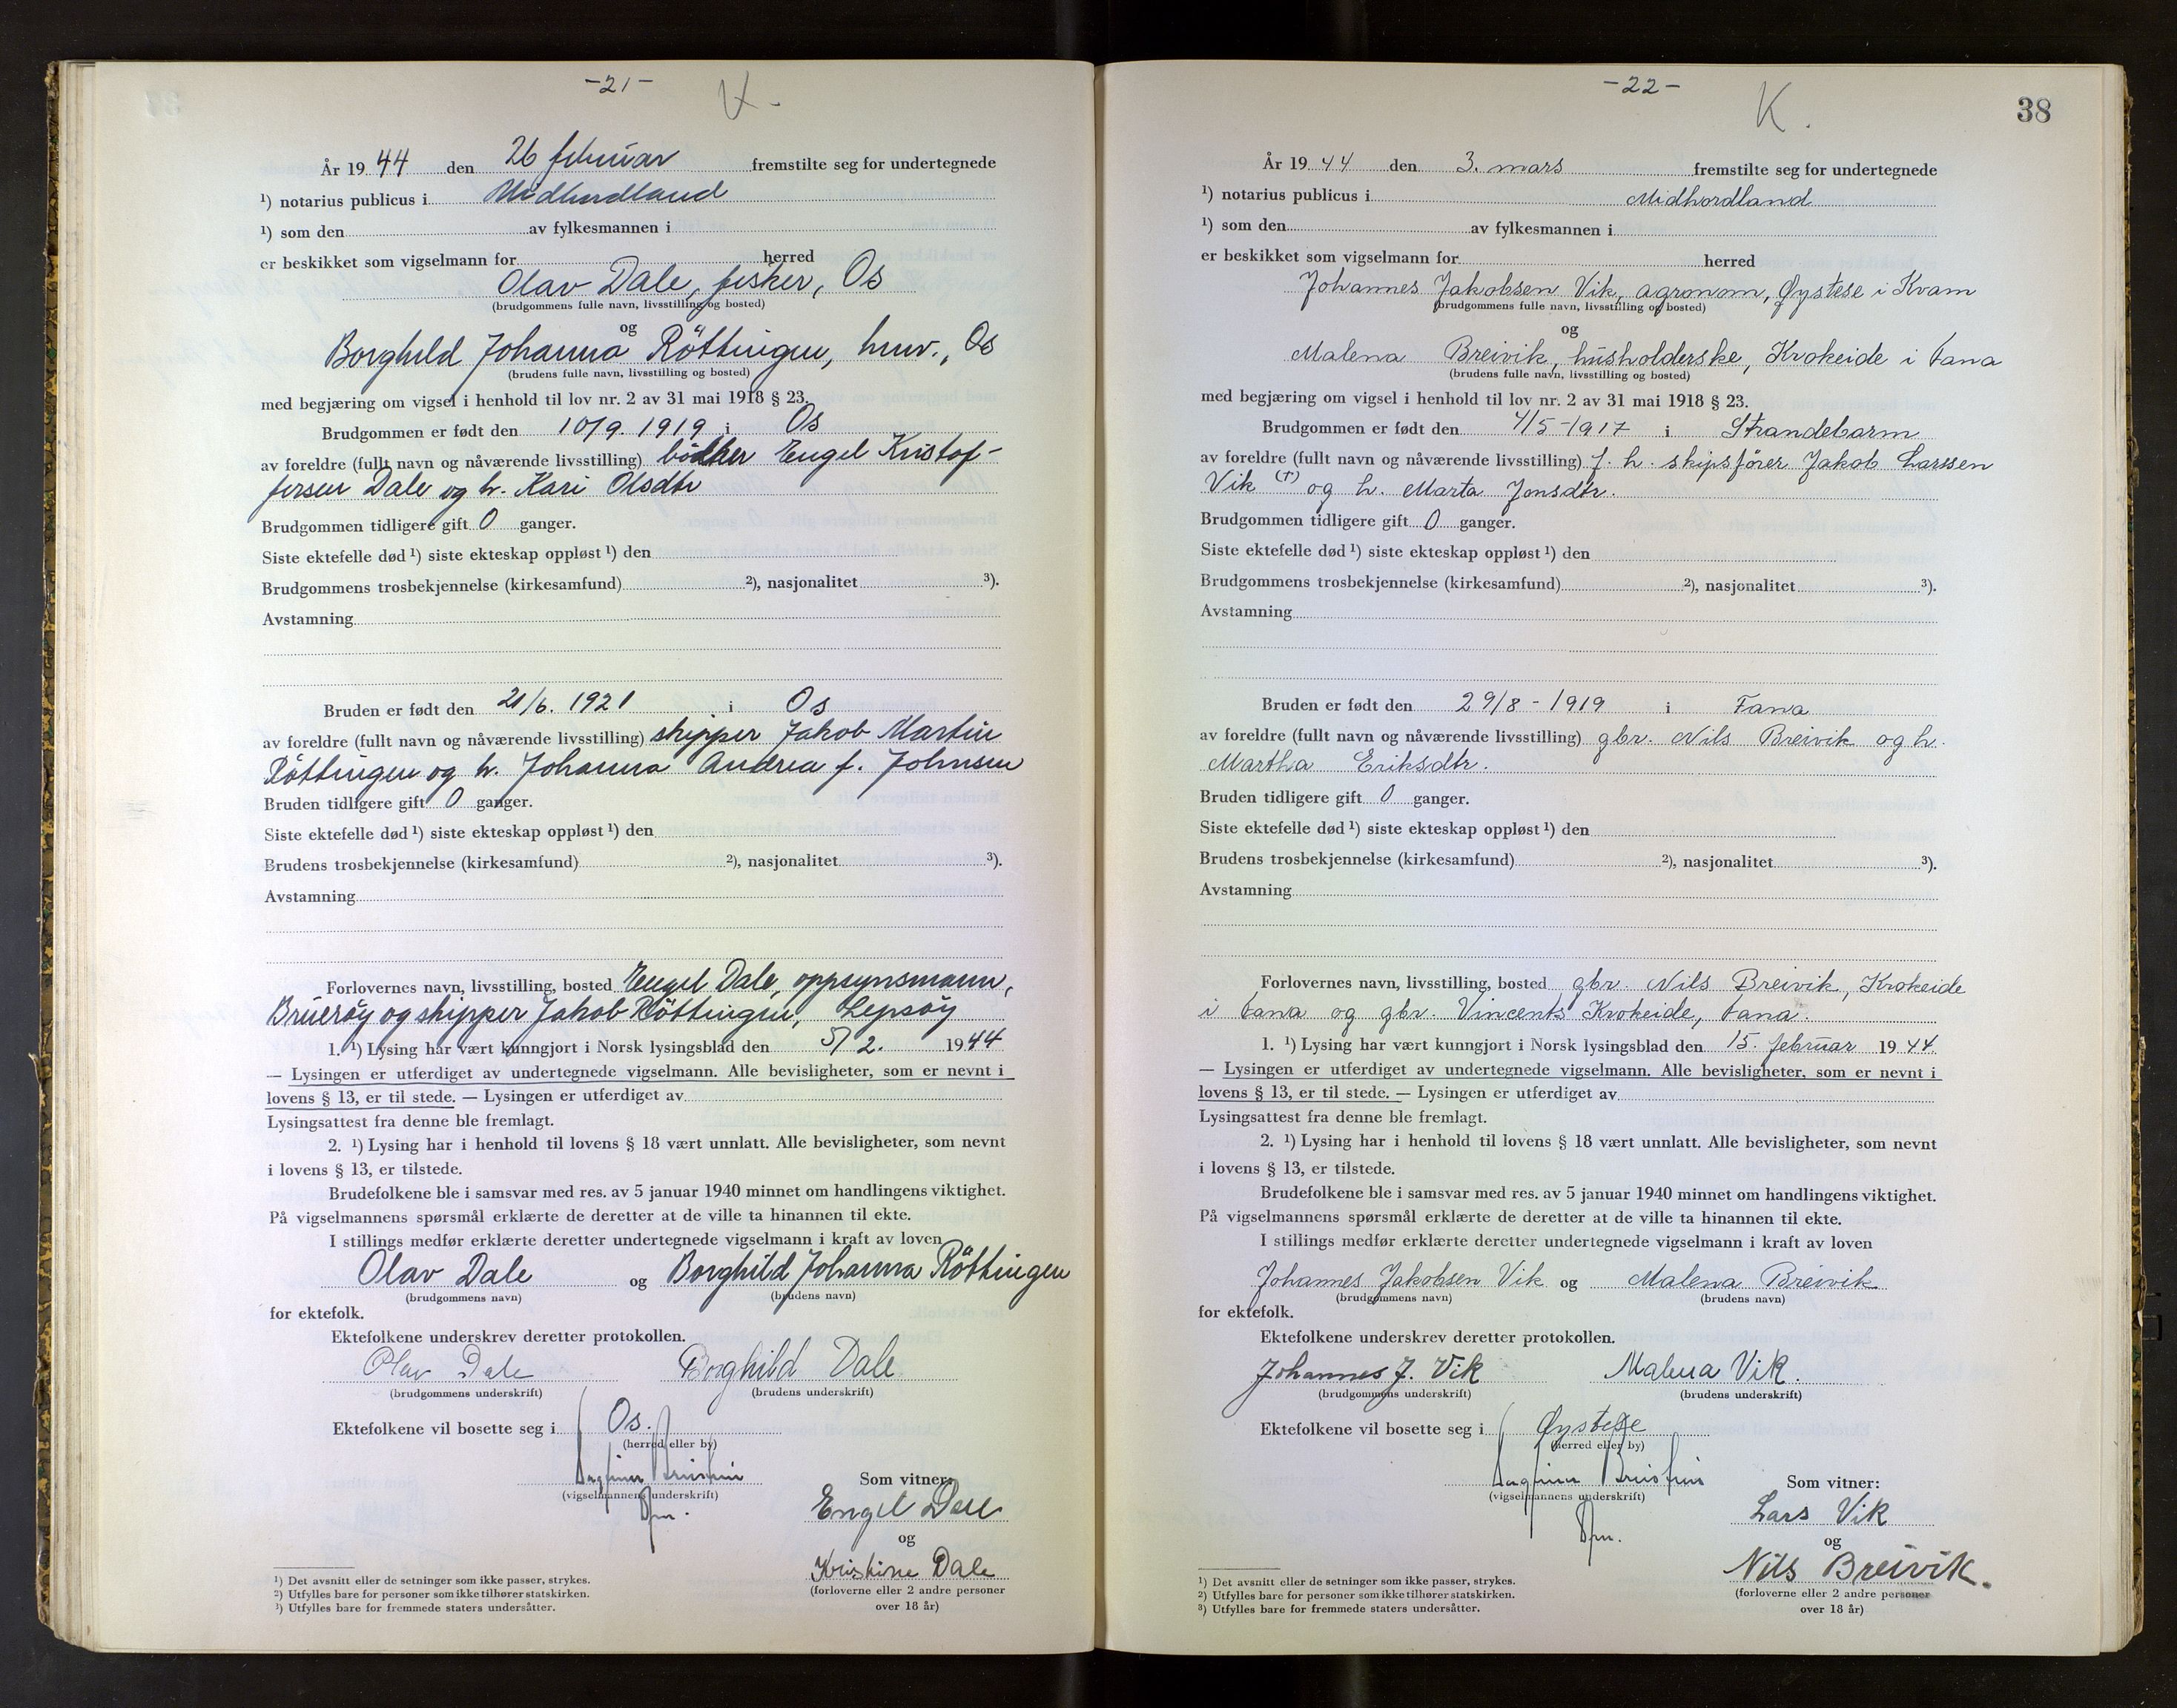 -21-
K.
År 1944 den 26 februar fremstilte seg for undertegnede
¹) notarius publicus i Midhordland
¹) som den av fylkesmannen i
er beskikket som vigselmann for herred
Olav Dale, fisker, Os
(brudgommens fulle navn, livsstilling og bosted)
og
Borghild Johanna Röttingen, husv., Os
(brudens fulle navn, livsstilling og bosted)
med begjæring om vigsel i henhold til lov nr. 2 av 31 mai 1918 § 23.
Brudgommen er født den 10/9. 1919 i Os
av foreldre (fullt navn og nåværende livsstilling) bödker Engel Kristof-
fersen Dale og h. Kari Olsdtr
Brudgommen tidligere gift 0 ganger.
Siste ektefelle død ¹) siste ekteskap oppløst ¹) den
Brudgommens trosbekjennelse (kirkesamfund) ²), nasjonalitet ³).
Avstamning
Bruden er født den 21/6. 1921 i Os
av foreldre (fullt navn og nåværende livsstilling) skipper Jakob Martin
Röttingen og h. Johanna Andrea f. Johnsen
Bruden tidligere gift 0 ganger.
Siste ektefelle død ¹) siste ekteskap oppløst ¹) den
Brudens trosbekjennelse (kirkesamfund) ²), nasjonalitet ³).
Avstamning
Forlovernes navn, livsstilling, bosted Engel Dale, oppsynsmann,
Bruerøy og skipper Jakob Röttingen, Lepsöy
1. ¹) Lysing har vært kunngjort i Norsk lysingsblad den 5/2. 1944
— Lysingen er utferdiget av undertegnede vigselmann. Alle bevisligheter, som er nevnt i
lovens § 13, er til stede. — Lysingen er utferdiget av
Lysingsattest fra denne ble fremlagt.
2. ¹) Lysing har i henhold til lovens § 18 vært unnlatt. Alle bevisligheter, som nevnt
i lovens § 13, er tilstede.
Brudefolkene ble i samsvar med res. av 5 januar 1940 minnet om handlingens viktighet.
På vigselmannens spørsmål erklærte de deretter at de ville ta hinannen til ekte.
I stillings medfør erklærte deretter undertegnede vigselmann i kraft av loven
Olav Dale og Borghild Johanna Röttingen
(brudgommens navn) (brudens navn)
for ektefolk.
Ektefolkene underskrev deretter protokollen.
Olav Dale Borghild Dale
(brudgommens underskrift) (brudens underskrift)
Ektefolkene vil bosette seg i Os.
(herred eller by)
(vigselmannens underskrift)
Som vitner:
Engel Dale
og
Kristine Dale
(forloverne eller 2 andre personer
over 18 år)
¹) Det avsnitt eller de setninger som ikke passer, strykes.
²) Utfylles bare for personer som ikke tilhører statskirken.
³) Utfylles bare for fremmede staters undersåtter.
-22-
K.
38
År 1944 den 3. mars fremstilte seg for undertegnede
¹) notarius publicus i Midhordland
¹) som den av fylkesmannen i
er beskikket som vigselmann for herred
Johannes Jakobsen Vik, agronom, Øystese i Kvam
(brudgommens fulle navn, livsstilling og bosted)
og
Malena Breivik, husholderske, Krokeide i Fana
(brudens fulle navn, livsstilling og bosted)
med begjæring om vigsel i henhold til lov nr. 2 av 31 mai 1918 § 23.
Brudgommen er født den 4/5-1917 i Strandebarm
av foreldre (fullt navn og nåværende livsstilling) f. h. skipsfører Jakob Larssen
Vik (†) og h. Marta Jonsdtr.
Brudgommen tidligere gift 0 ganger.
Siste ektefelle død ¹) siste ekteskap oppløst ¹) den
Brudgommens trosbekjennelse (kirkesamfund) ²), nasjonalitet ³).
Avstamning
Bruden er født den 29/8 - 1919 i Fana
av foreldre (fullt navn og nåværende livsstilling) gbr. Nils Breivik og h.
Martha Eriksdtr.
Bruden tidligere gift 0 ganger.
Siste ektefelle død ¹) siste ekteskap oppløst ¹) den
Brudens trosbekjennelse (kirkesamfund) ²), nasjonalitet ³).
Avstamning
Forlovernes navn, livsstilling, bosted gbr. Nils Breivik, Krokeide
i Fana og gbr. Vincents Krokeide, Fana.
1. ¹) Lysing har vært kunngjort i Norsk lysingsblad den 15. februar 1944
— Lysingen er utferdiget av undertegnede vigselmann. Alle bevisligheter, som er nevnt i
lovens § 13, er til stede. — Lysingen er utferdiget av
Lysingsattest fra denne ble fremlagt.
2. ¹) Lysing har i henhold til lovens § 18 vært unnlatt. Alle bevisligheter, som nevnt
i lovens § 13, er tilstede.
Brudefolkene ble i samsvar med res. av 5 januar 1940 minnet om handlingens viktighet.
På vigselmannens spørsmål erklærte de deretter at de ville ta hinannen til ekte.
I stillings medfør erklærte deretter undertegnede vigselmann i kraft av loven
Johannes Jakobsen Vik og Malena Breivik
(brudgommens navn) (brudens navn)
for ektefolk.
Ektefolkene underskrev deretter protokollen.
Johannes J. Vik Malena Vik.
(brudgommens underskrift) (brudens underskrift)
Ektefolkene vil bosette seg i Øystese
(herred eller by)
(vigselmannens underskrift)
Som vitner:
Lars Vik
og
Nils Breivik.
(forloverne eller 2 andre personer
over 18 år)
¹) Det avsnitt eller de setninger som ikke passer, strykes.
²) Utfylles bare for personer som ikke tilhører statskirken.
³) Utfylles bare for fremmede staters undersåtter.